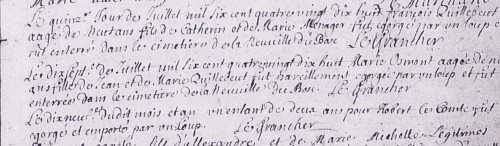 Le quinz.e Jour de Juillet mil six cent quatre vingt dix huit françois Quilleboeuf
aagé de neuf ans fils de Catherin et de Marie Menager fut egorgé par un loup e
fut enterré dans le cimetiere de la Neuville du Bosc Le Grancher
Le dix sept.e de Juillet mil six cent quatre vingt dix huit Marie Osmont aagée de
ans fille de Jean et de Marie Quilleboeuf fut pareillement egorgée par un loup et fut
enterrée dans le cimetiere de la Neuville du Bosc Le Grancher
Le dix neuf.e dudit mois et an un enfant de deux ans pour Robert le Comte fut
egorgé et emporté par un Loup. Le Grancher
fils d'allexandre et de Marie Michelle Legitimes